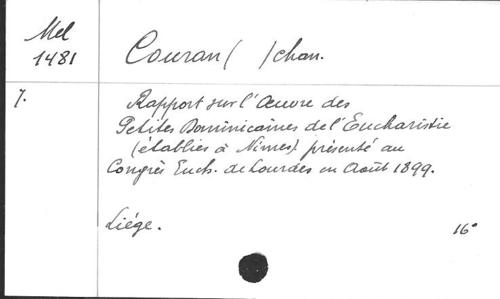 Mel
1481
Couran( )chan.
7.
Rapport sur l'Œuvre des
Petites Dominicaines de l'Eucharistie
(établies à Nimes) présenté au
Congrès Euch. de Lourdes en Août 1899.
Liége.
16°